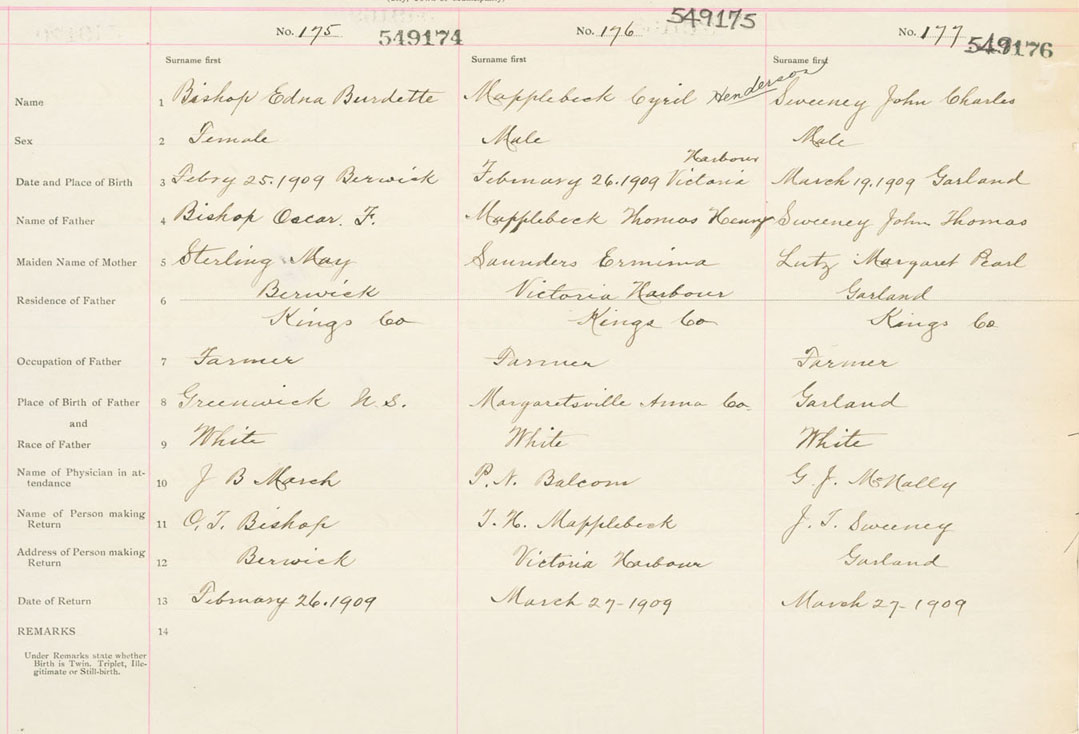 No. 175 549174 No. 176 549175 No. 177 549176
Surname first Surname first Surname first
Name 1 Bishop Edna Burdette Mapplebeck Cyril Henderson Sweeney John Charles
Sex 2 Female Male Male
Harbour
Date and Place of Birth 3 Febry 25.1909 Berwick February 26.1909 Victoria March 19.1909 Garland
Name of Father 4 Bishop Oscar. F. Mapplebeck Thomas Henry Sweeney John Thomas
Maiden Name of Mother 5 Sterling May Saunders Ermima Lutz Margaret Pearl
Residence of Father 6 Berwick Victoria Harbour Garland
Kings Co Kings Co Kings Co
Occupation of Father 7 Farmer Farmer Farmer
Place of Birth of Father 8 Greenwick N.S. Margaretsville Anna Co. Garland
and
Race of Father 9 White White White
Name of Physician in at-
tendance 10 J B March P.N. Balcom G.J. McNally
Name of Person making
Return 11 O,F. Bishop T.H. Mapplebeck J.T. Sweeney
Address of Person making
Return 12 Berwick Victoria Harbour Garland
Date of Return 13 February 26.1909 March 27-1909 March 27-1909
REMARKS 14
Under Remarks state whether
Birth is Twin. Triplet, Ille-
gitimate or Still-birth.